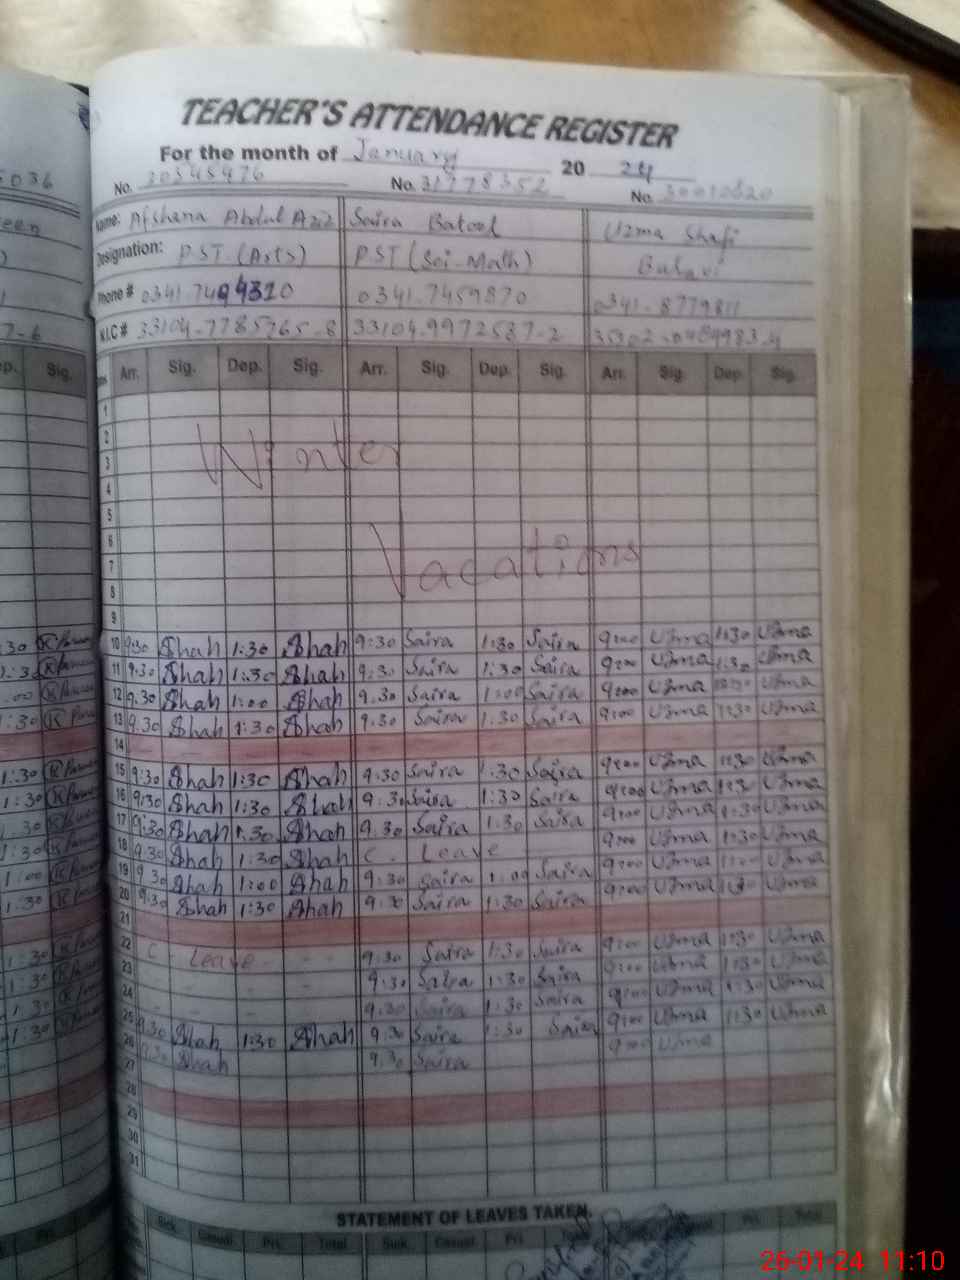 TEACHER'S ATTENDANCE REGISTER
For the month of January 20 24
No. 30345476 No. 31778352 No. 30010820
Name: Afshana Abdul Aziz Saira Batool Uzma Shafi
Designation: P.S.T. (Arts) P.S.T (Sci-Math)
Phone # 0341.7494320 0341.7459870 0341-8779811
N.I.C # 33104-7785765-8 33104-9972537-2
Arr. Sig. Dep. Sig. Arr. Sig. Dep. Sig. Arr. Sig. Dep. Sig.
1
2
3 Winter
4
5
6
7 Vacations
8
9
10 9:30 Shah 1:30 Shah 9:30 Saira 1:30 Saira 9:00 Uzma 1:30 Uzma
11 9:30 Shah 1:30 Shah 9:30 Saira 1:30 Saira 9:00 Uzma 1:30 Uzma
12 9.30 Shah 1:00 Shah 9.30 Saira 1:00 Saira 9:00 Uzma Uzma
13 9.30 Shah 1:30 Shah 9.30 Saira 1:30 Saira 9:00 Uzma 1:30 Uzma
14
15 9:30 Shah 1:30 Shah 9:30 Saira 1:30 Saira 9:00 Uzma 1:30 Uzma
16 9:30 Shah 1:30 Shah 9.30 Saira 1:30 Saira 9:00 Uzma 1:30 Uzma
17 9:30 Shah 1:30 Shah 9.30 Saira 1:30 Saira 9:00 Uzma 1:30 Uzma
18 9.30 Shah 1:30 Shah C. Leave 9:00 Uzma 1:30 Uzma
19 9.30 Shah 1:00 Shah 9:30 Saira 1:00 Saira 9:00 Uzma 1:00 Uzma
20 9:30 Shah 1:30 Shah 9:30 Saira 1:30 Saira 9:00 Uzma 1:30 Uzma
21
22 C Leave - - 9:30 Saira 1:30 Saira 9:00 Uzma 1:30 Uzma
23 - - - - 9:30 Saira 1:30 Saira 9:00 Uzma 1:30 Uzma
24 - - - - 9:30 Saira 1:30 Saira 9:00 Uzma 1:30 Uzma
25 9:30 Shah 1:30 Shah 9:30 Saira 1:30 Saira 9:00 Uzma 1:30 Uzma
26 9:30 Shah 9.30 Saira 9:00 Uzma
27
28
29
30
31
STATEMENT OF LEAVES TAKEN.
Sick Casual Pri. Total Sick Casual Pri. Total Casual Pri. Total
25-01-24 11:10